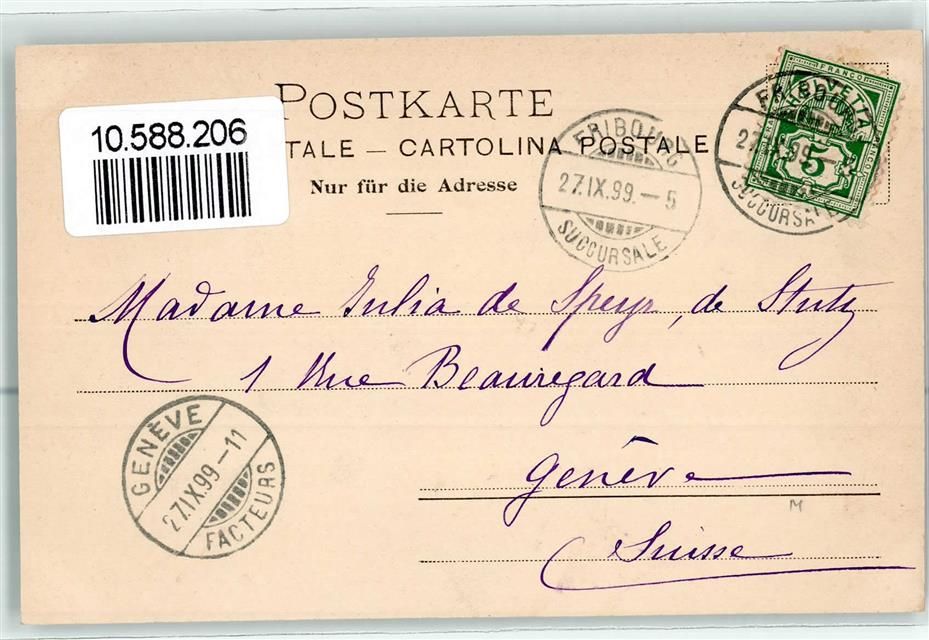 POSTKARTE
TALE — CARTOLINA POSTALE
Nur für die Adresse
10.588.206
FRIBOURG
27.IX.99.-5
SUCCURSALE
FRIBOURG
27.IX.99.-
SUCCURSALE
FRANCO
HELVETIA
5
Madame Julia de Speyr, de Stutz
1 Rue Beauregard
Genève
Suisse
M
GENÈVE
27.IX.99-11
FACTEURS